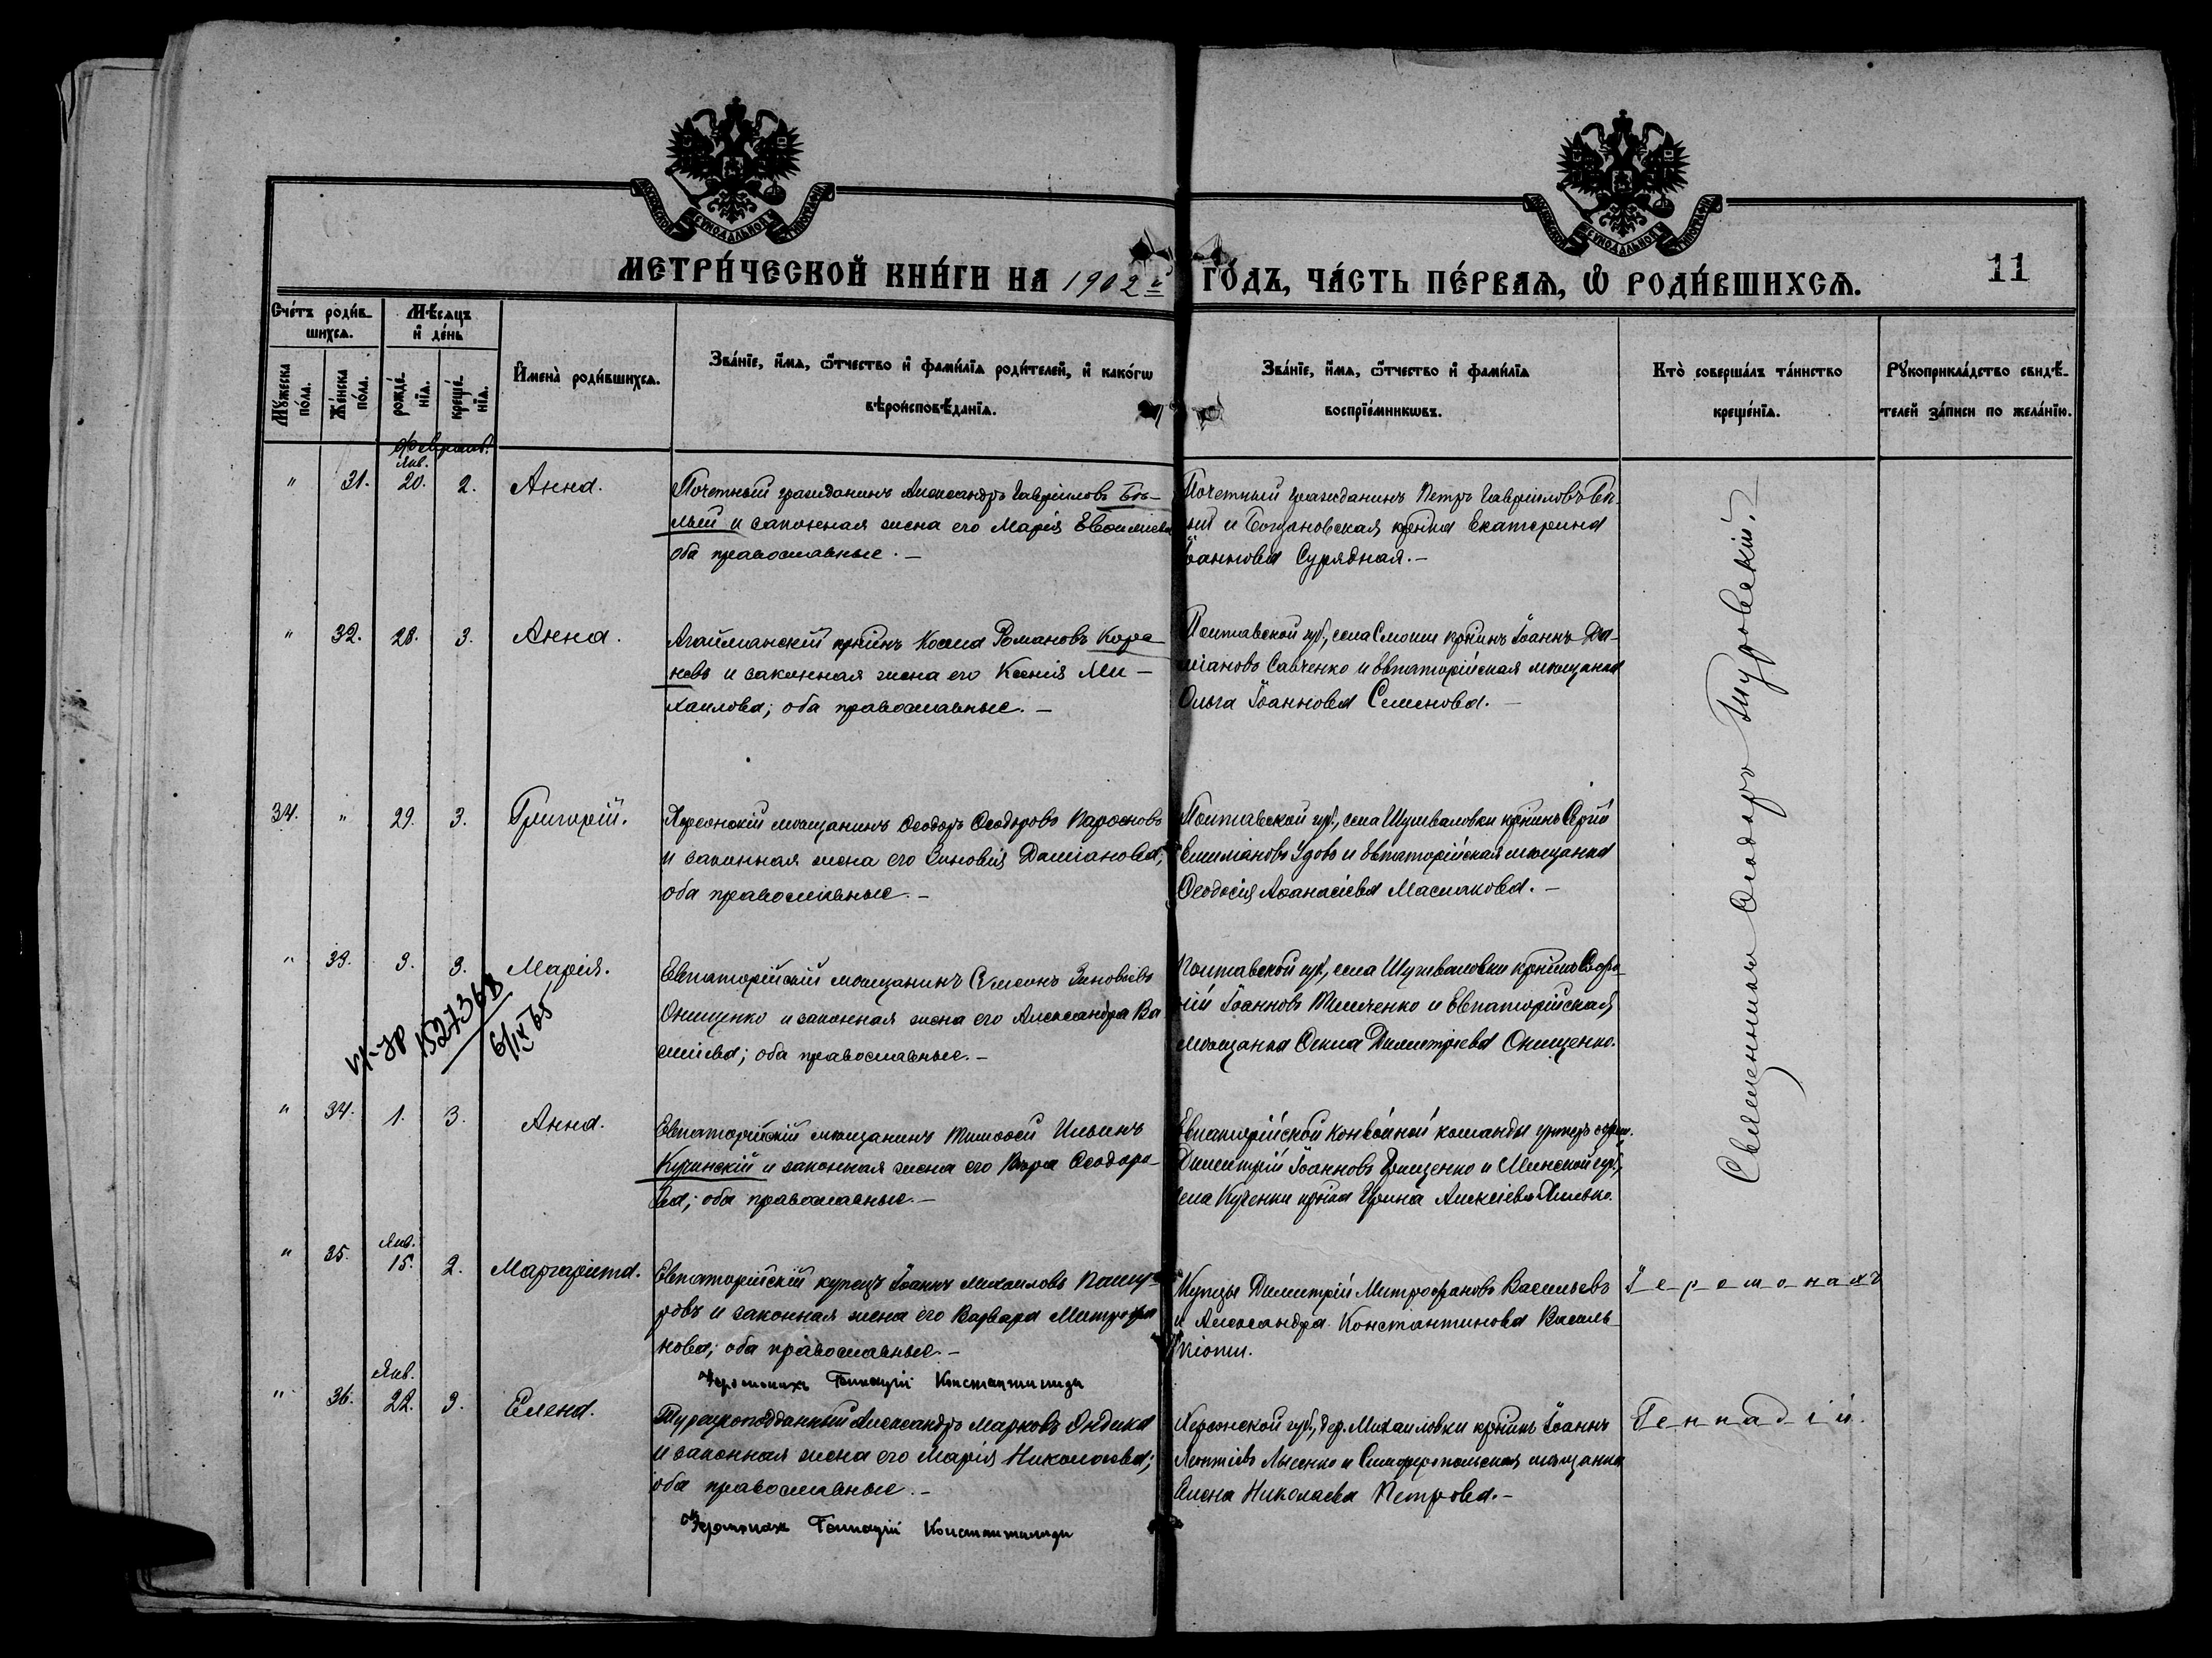 МЕТРИ́ЧЕСКОЙ КНИ́ГИ НА 1902й ГО́ДЪ, ЧА́СТЬ ПЕ́РВАѦ, Ѡ РОДИ́ВШИХСѦ.
11
Сче́тъ роди́в-
шихсѧ.
Мѣ́сѧцъ
и де́нь
Мꙋжеска по́ла.
Же́нска по́ла.
рожде́-
нїѧ.
креще́-
нїѧ.
И҆мена̀ роди́вшихсѧ.
Зва́нїе, и҆́мѧ, ѻ҆́тчество и҆ фами́лїѧ роди́телей, и҆ како́гѡ
вѣроисповѣ́данїѧ.
Зва́нїе, и҆́мѧ, ѻ҆́тчество и҆ фами́лїѧ
воспрїе́мникѡвъ.
Кто̀ соверша́лъ та́инство
креще́нїѧ.
Рꙋкоприкла́дство свидѣ́-
телей за́писи по жела́нїю.
Февраль.
" 31. Янв. 20. 2. Анна.
Почетный гражданинъ Александръ Гавріиловъ Бѣ-
лый и законная жена его Марія Евѳиміева
оба православные. –
Почетный гражданинъ Петръ Гавріиловъ Бѣ-
лый и Богдановская кр-нка Екатерина
Іоаннова Сурядная. –
" 32. 28. 3. Анна.
Агайманскій кр-нинъ Косма Романовъ Кора-
невъ и законная жена его Ксенія Ми-
хаилова; оба православные. –
Полтавской губ., села кр-нинъ Іоаннъ Да-
міановъ Савченко и Евпаторійская мѣщанка
Ольга Іоаннова Семенова. –
34. " 29. 3. Григорій.
Херсонскій мѣщанинъ Ѳеодоръ Ѳеодоровъ
и законная жена его Зиновія Даміанова;
оба православные. –
Полтавской губ., села Шушваловки кр-нинъ Сергій
и Евпаторійская мѣщанка
Ѳеодосія Аѳанасіева Маслакова. –
" 33. 3. 3. Марія.
Евпаторійскій мѣщанинъ Сѵмеонъ Зиновіевъ
Онищенко и законная жена его Александра Ва-
силіева; оба православные. –
Полтавской губ., села Шушваловки кр-нинъ
Іоанновъ Тимченко и Евпаторійская
мѣщанка Димитріева Онищенко.
1527368
6/IX 65
" 34. 1. 3. Анна.
Евпаторійскій мѣщанинъ Тимоѳей Ильинъ
Кучинскій и законная жена его Вѣра Ѳеодоро-
ва; оба православные. –
Евпаторійской конвойной команды унтеръ офиц.
Димитрій Іоанновъ Грищенко и Минской губ.,
села Кученки кр-нка Ирина Алексіева Хилько.
Священникъ Ѳеодоръ Туровскій.
" 35. Янв. 15. 2. Маргарита.
Евпаторійскій купецъ Іоаннъ Михаиловъ Пашу-
ровъ и законная жена его Варвара Митрофа-
нова; оба православные. –
Іеромонахъ Геннадій Константиниди
Купцы Димитрій Митрофановъ Васильевъ
и Александра Константинова Василь-
Іеромонахъ
" 36. Янв. 22. 3. Елена.
Турецкоподданный Александръ Марковъ Ондика
и законная жена его Марія Николаева;
оба православные. –
Іеромонах Геннадій Константиниди
Херсонской губ., дер. Михаиловки кр-нинъ Іоаннъ
Леонтіевъ Лысенко и Симферопольская мѣщанка
Елена Николаева Петрова. –
Геннадій.